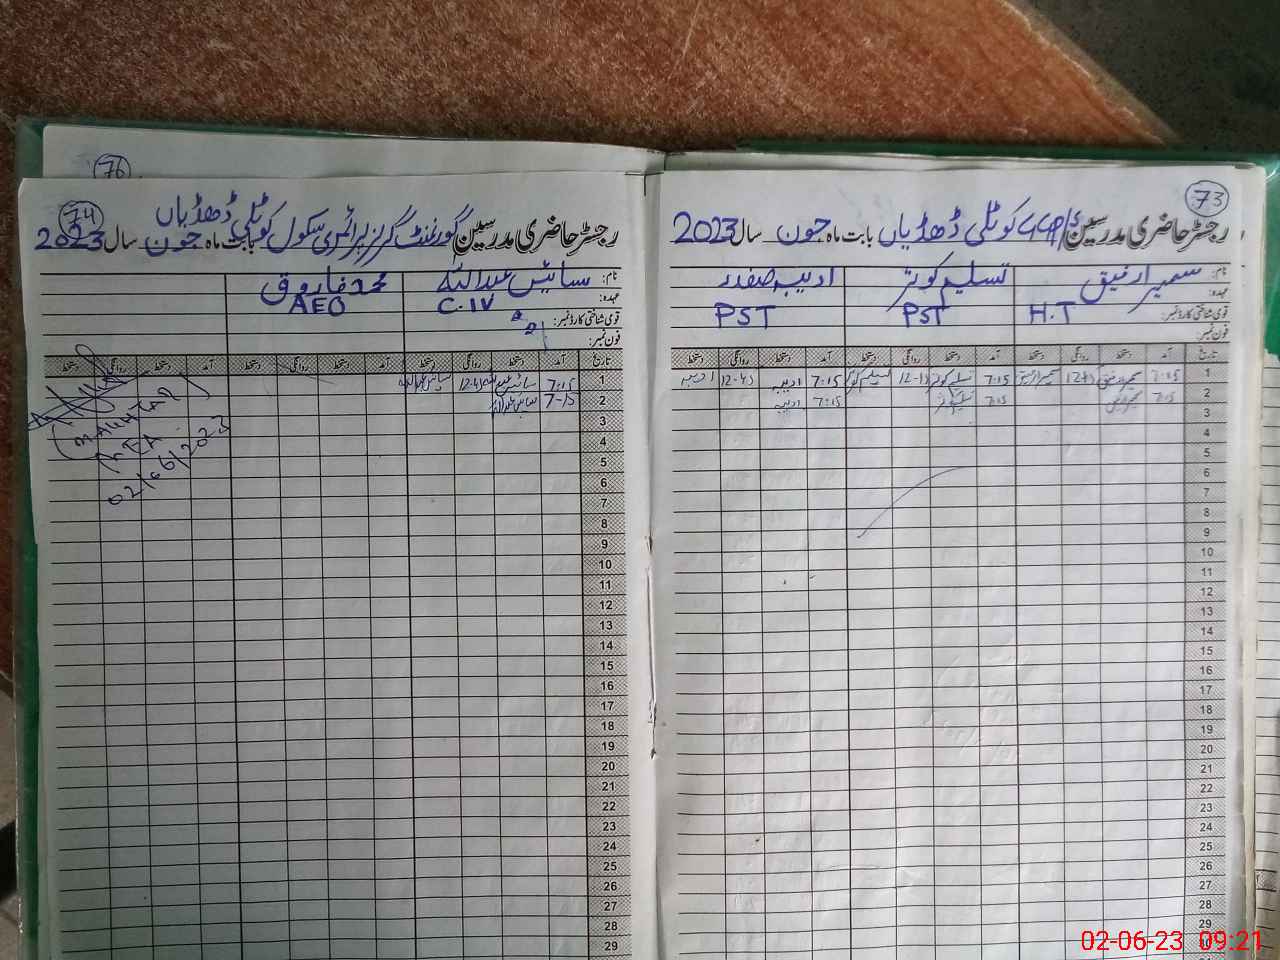 73
رجسٹر حاضری مدرسین کوٹلی ڈھڈیاں بابت ماہ جون سال 2023
نام: سمیرا رفیق تسلیم کوثر ادیبہ صفدر
عہدہ: H.T PST PST
قومی شناختی کارڈ نمبر:
فون نمبر:
تاریخ آمد دستخط روانگی دستخط آمد دستخط روانگی دستخط آمد دستخط روانگی دستخط
1 7:15 7:15 7:15 ادیبہ 12-45 ادیبہ
2 7:15 7:15 7:15 ادیبہ
3
4
5
6
7
8
9
10
11
12
13
14
15
16
17
18
19
20
21
22
23
24
25
26
27
28
29
76
74
رجسٹر حاضری مدرسین گورنمنٹ گرلز پرائمری سکول کوٹلی ڈھڈیاں بابت ماہ جون سال 2023
نام: محمد فاروق
عہدہ: C.IV AEO
قومی شناختی کارڈ نمبر:
فون نمبر:
تاریخ آمد دستخط روانگی دستخط آمد دستخط روانگی دستخط آمد دستخط روانگی دستخط
1 7:15 12-45
2 7-15
3
4
5
6
7
8
9
10
11
12
13
14
15
16
17
18
19
20
21
22
23
24
25
26
27
28
29
MEA
02/06/2023
02-06-23 09:21